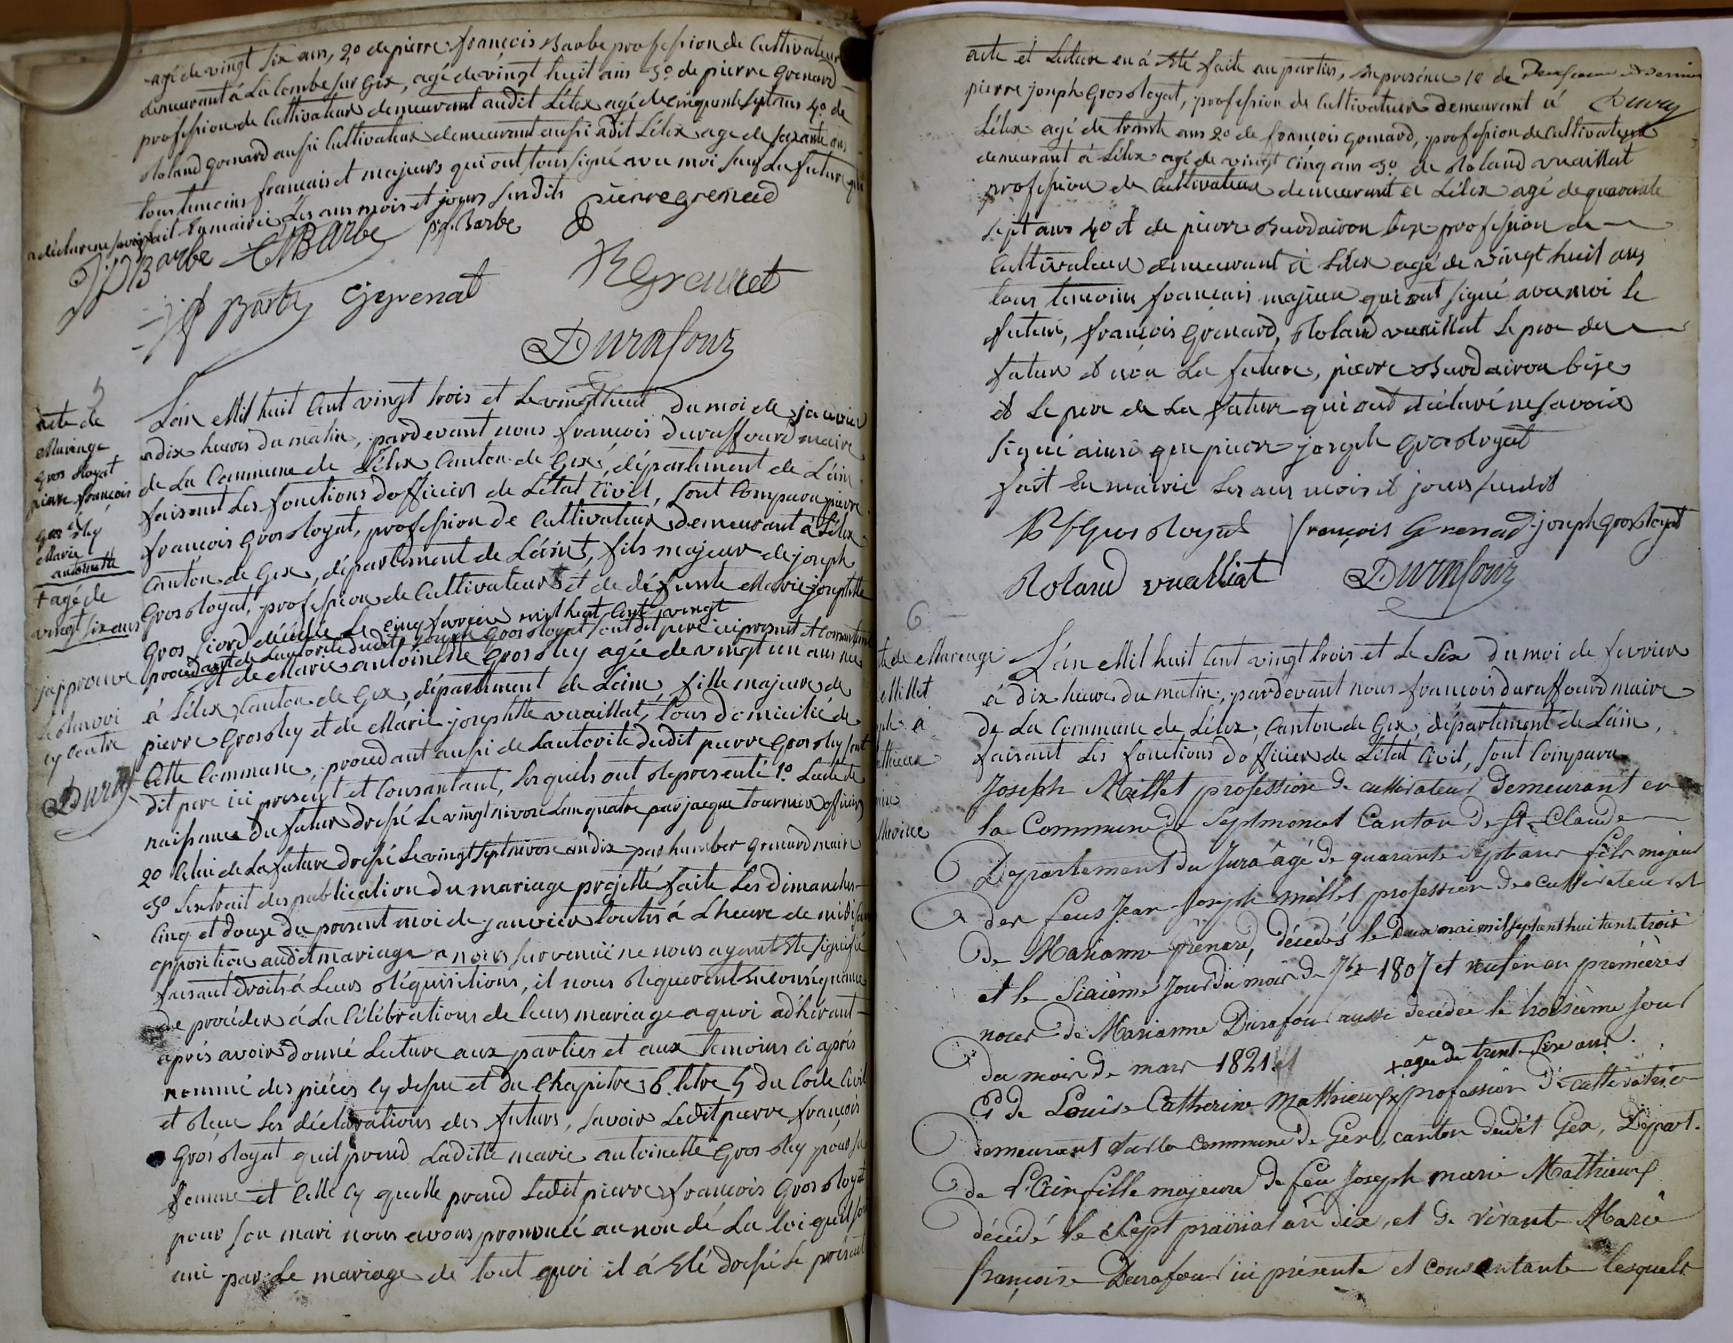 agé de vingt six ans, 2o de pierre françois Barbe profession de Cultivateur
demeurant à La Combe sur Gex, agé de vingt huit ans 3o de pierre Grenard
profession de Cultivateur demeurant audit Lélex agé de cinquante sept ans 4o de
Roland grenard aussi Cultivateur demeurant aussi adit Lélex age de soixante ans
tous temoins francais et majeurs qui ont tous signé avec moi sauf La future qui
a déclaré ne savoir fait En mairie Les ans mois et jours susdits
pierre grenard
JP Barbe
Barbe
pf Barbe
Barbe
grenat
R Grenard
Durafour
5
acte de
Mariage
Gros Royat
pierre françois
et
Gros Rey
Marie
antoinette
+ agé de
vingt six ans
japprouve
le renvoi
cy contre
Durf
L'an Mil huit Cent vingt trois et Le vingt huit du moi de janvier
a dix heures du matin, pardevant nous françois duraffourd maire
de La Commune de Lélex Canton de Gex, département de Lain
faisant Les fonctions d'officier de L'état Civil, sont Comparu pierre
françois Gros Royat, profession de Cultivateur demeurant à Lélex
Canton de Gex, département de Lain +, fils majeur de joseph
Gros Royat, profession de Cultivateur et de défunte Marie josephtte
Gros jiord décédée Le cinq fevrier mil huit Cent vingt
procedant de Lautorité dudit joseph Gros Royat sont dit pere ici present et Consentant
et de Marie antoinette Gros Rey agée de vingt un ans née
à Lélex, Canton de Gex, département de Lain, fille majeure de
pierre Gros Rey et de Marie josephtte vuaillat, tous domicilié de
Cette Commune, procedant aussi de Lautorité dudit pierre Gros Rey sont
dit pere ici present et Consantant, Lesquels ont Représenté 1o Lacte de
naissance du futur dressé Le vingt nivose Lan quatre par jacque tournier officier
2o Celui de La future dressé Le vingt sept nivose an dix par humber Grenard maire
3o Lextrait des publication du mariage projetté faite Les dimanches
Cinq et douze du present moi de janvier toutes à Lheure de midi
opposition audit mariage a nous survenue ne nous ayant été signifié
faisant droits à Leurs Réquisitions, il nous Requerent en conséquence
de procéder à La Célébrations de leurs mariage a quoi adhérant
aprés avoir donné Lecture aux parties et aux temoins ci aprés
nommé des piéces cy dessu et du Chapitre 6 titre 5 du Code Civil
et Recu Les déclarations des futurs, savoir Ledit pierre françois
Gros Royat quil prend Ladite marie antoinette Gros Rey pour sa
femme et Celle cy quelle prend Ledit pierre françois Gros Royat
pour son mari nous avons prononcé au nom dé La loi quil sont
uni par Le mariage de tout quoi il à été dressé Le présent
acte et Lecture en à été faite au parties, en présence 1o de
Durf
pierre joseph Gros Royat, profession de Cultivateur demeurant à
Lélex agé de trente ans 2o de françois Grenard, profession de Cultivateur
demeurant à Lélex agé de vingt Cinq ans 3o de Roland vuaillat
profession de Cultivateur demeurant a Lélex agé de quarante
sept ans 4o et de pierre Burdairon bise profession de
Cultivateur demeurant à Lélex agé de vingt huit ans
tous temoins francais majeur qui ont signé avec moi le
futur, françois Grenard, Roland vuaillat Le pere du
futur et non La future, pierre Burdairon bise
et Le pere de La future qui ont déclaré ne savoir
signé ainsi que pierre joseph Gros Royat
fait En mairie Les ans mois et jours susdit
P f Gros Royat
françois Grenard
joseph Gros Royat
Roland vuaillat
Durafour
6
de Mariage
Millet
à
Mathieux
L'an Mil huit Cent vingt trois et Le Six du moi de fevrier
à dix heures du matin, pardevant nous françois duraffourd maire
de La Commune de Lélex, Canton de Gex, département de Lain,
faisant Les fonctions dofficier de Létat Civil, sont Comparu
Joseph Millet profession de cultivateur demeurant en
la Commune de Septmoncel Canton de St Claude
Département du Jura âgé de quarante sept ans fils majeur
des feus Jean Joseph millet profession de cultivateur et
de Marianne Grénard, décédés le deux mai mil sept cent huitante trois
et le sixième jour du mois de 7bre 1807 et veuf en premières
noces de Marianne Durafour aussi decédée le troisième jour
du mois de mars 1821
x âgée de trent six ans.
Et de Louise Catherine Mathieux x profession de cultivatrice
demeurant sur la commune de Gex, canton dudit Gex, Départ.
de L'Ain fille majeure de feu Joseph marie Mathieux
décédé le sept prairial an dix, et de vivante Marie
françoise Durafour ici présente et consentante lesquels